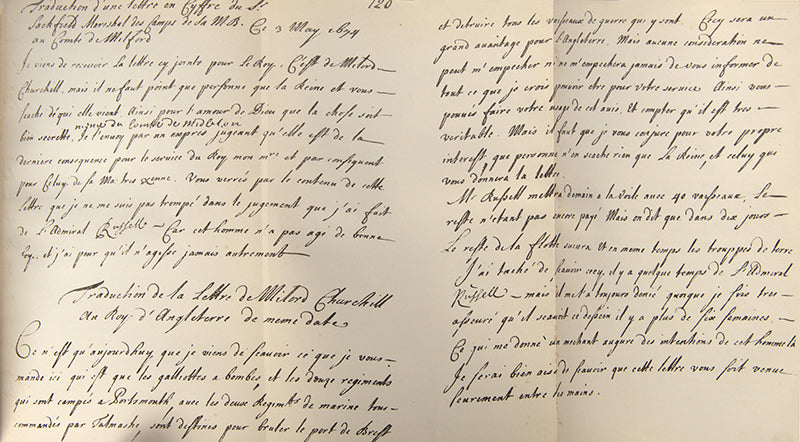 Traduction d'une lettre en Cyffre du Sr
120
Sackfield Mareshal des Camps de Sa M.B.
Ce 3 May 1694
au Comte de Melford
Je viens de recevoir la lettre cy jointe pour Le Roy. C'est de Milord
Churchill, mais il ne faut point que personne que la Reine et vous
scache de qui elle vient. Ainsi pour l'amour de Dieu que la chose soit
bien secrette. Je l'envoy par un expres jugeant qu'elle est de la
derniere consequence pour le service du Roy mon mre et par consequent
pour Celuy de sa Ma: tres xenne. Vous verrés par le contenu de cette
lettre que je ne me suis pas trompé dans le jugement que j'ai fait
de L'Admiral Russell – Car cet homme n'a pas agi de bonne
foy. et j'ai peur qu'il n'agisse jamais autrement
Traduction de la Lettre de Milord Churchill
au Roy d'Angleterre de meme date
Ce n'est qu'aujourdhuy que je viens de scavoir ce que je vous
mande ici qui est que les galliottes a bombes, et les douze regiments
qui sont campés a Portsmouth, avec les deux Regimts de marine tous
commandés par Talmashe, sont destinés pour bruler le port de Brest
et detruire tous les vaisseaux de guerre que y sont. Cecy sera un
grand avantage pour l'Angleterre. Mais aucune consideration ne
peut m'empecher ni ne m'empechera jamais de vous informer de
tout ce que je crois pouvoir etre pour votre service. Ainsi vous
pouvés faire votre usage de cet avis. Et compter qu'il est tres
veritable. Mais il faut que je vous conjure pour votre propre
interest que personne n'en scache rien que La Reine, et celuy que
vous donnera la lettre.
Mr Russell mettra demain a la Voile avec 40 vaisseaux. Le
reste n'etant pas encore payé Mais on dit que dans dix jours
Le reste de la flotte suivra Et en meme temps les trouppes de terre
J'ai taché de scavoir cecy, il y a quelque temps de L'Admiral
Russell – mais il m'et a toujours denié quoique je sois tres
asseuré qu'il scavoit ce dessein il y a plus de six semaines.
Ce qui me donne un mechant augure des intentions de cet homme la
Je serai bien aise de scavoir que cette lettre vous soit venue
seurement entre les mains.